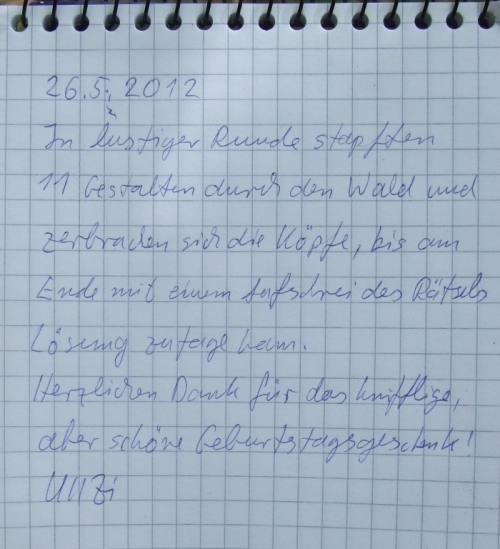 26.5. 2012
In lustiger Runde stapften
11 Gestalten durch den Wald und
zerbrachen sich die Köpfe, bis am
Ende mit einem Aufschrei des Rätsels
Lösung zutage kam.
Herzlichen Dank für das knifflige,
aber schöne Geburtstagsgeschenk!